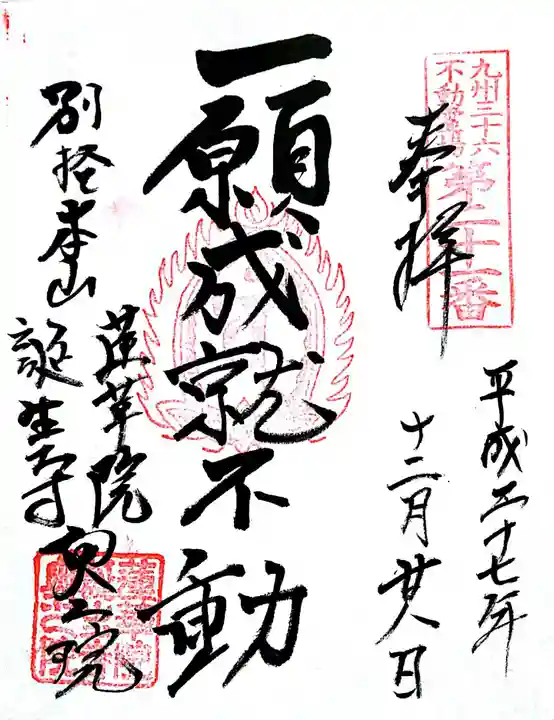 九州三十六
不動霊場
第二十一番
奉拝
平成二十七年
十二月廿八日
一願成就不動
別格本山
蓮華院
誕生寺
奥之院